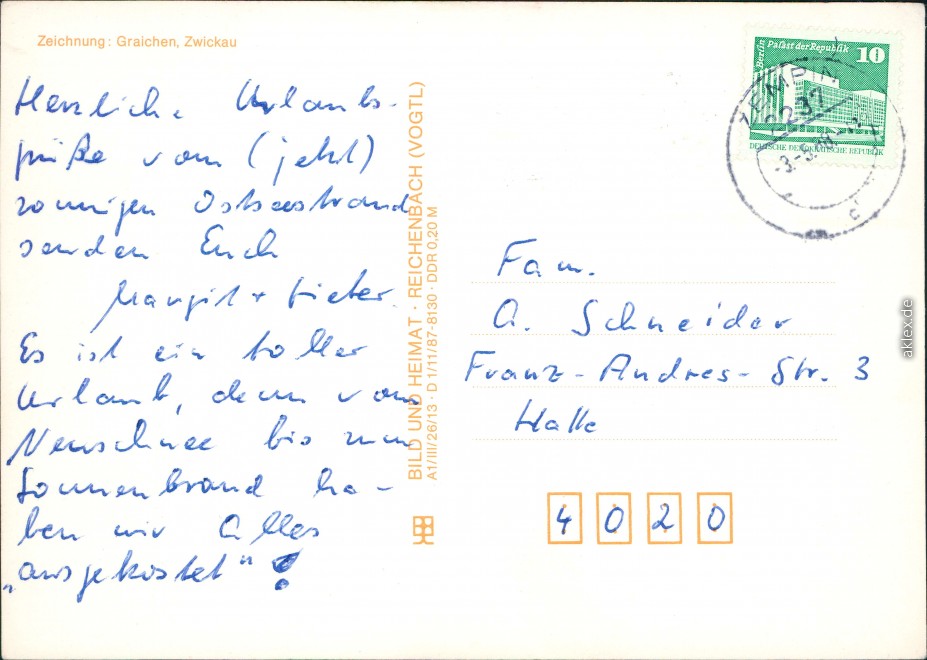 Zeichnung: Graichen, Zwickau
Herzliche Urlaubs-
grüße vom (jetzt)
sonnigen Ostseestrand
senden Euch
Margit + Dieter.
Es ist ein toller
Urlaub, denn vom
Neuschnee bis zum
Sonnenbrand ha-
ben wir Alles
„ausgekostet" !
BILD UND HEIMAT · REICHENBACH (VOGTL)
A1/III/26/13 · D 1/11/87-8130 · DDR 0,20 M
Berlin Palast der Republik 10
DEUTSCHE DEMOKRATISCHE REPUBLIK
ZEMPIN
2237
Fam.
A. Schneider
Franz-Andres-Str. 3
Halle
4020
aklex.de